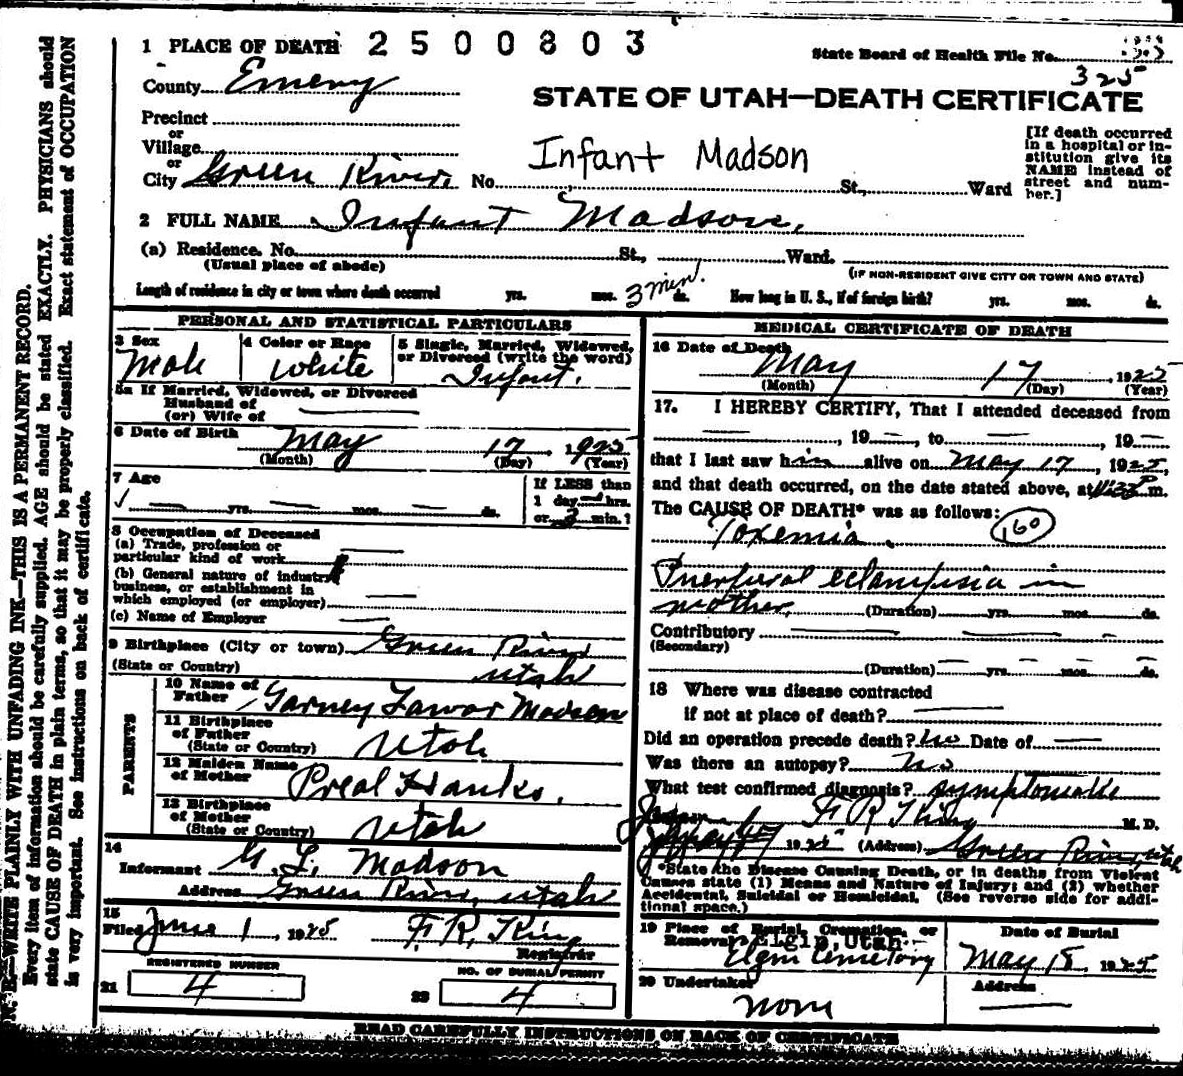 1 PLACE OF DEATH 2500803
State Board of Health File No.
325
County Emery
STATE OF UTAH—DEATH CERTIFICATE
Precinct
or
Village
or
City Green River, No. St., Ward
Infant Madson
[If death occurred in a hospital or institution give its NAME instead of street and number.]
2 FULL NAME Infant Madson,
(a) Residence. No. St., Ward.
(Usual place of abode) (IF NON-RESIDENT GIVE CITY OR TOWN AND STATE)
Length of residence in city or town where death occurred yrs. mos. 3 min. ds. How long in U. S., if of foreign birth? yrs. mos. ds.
PERSONAL AND STATISTICAL PARTICULARS
3 Sex Male
4 Color or Race White
5 Single, Married, Widowed, or Divorced (write the word) Infant.
5a If Married, Widowed, or Divorced
Husband of
(or) Wife of
6 Date of Birth May 17, 1925
(Month) (Day) (Year)
7 Age
yrs. mos. ds.
If LESS than
1 day hrs.
or 3 min.?
8 Occupation of Deceased
(a) Trade, profession or
particular kind of work
(b) General nature of industry
business, or establishment in
which employed (or employer)
(c) Name of Employer
9 Birthplace (City or town) Green River
(State or Country) Utah
PARENTS
10 Name of Father Garney Madson
11 Birthplace of Father
(State or Country) Utah
12 Maiden Name of Mother Preal Hanks.
13 Birthplace of Mother
(State or Country) Utah
14
Informant G. L. Madson
Address Green River, Utah
15
Filed June 1, 1925 F. R. King
Registrar
REGISTERED NUMBER
21 4
NO. OF BURIAL PERMIT
22 4
MEDICAL CERTIFICATE OF DEATH
16 Date of Death May 17, 1925
(Month) (Day) (Year)
17. I HEREBY CERTIFY, That I attended deceased from
, 19 , to , 19
that I last saw him alive on May 17, 1925,
and that death occurred, on the date stated above, at m.
The CAUSE OF DEATH* was as follows:
Toxemia. 160
Puerperal eclampsia in
mother. (Duration) yrs. mos. ds.
Contributory
(Secondary)
(Duration) yrs. mos. ds.
18 Where was disease contracted
if not at place of death?
Did an operation precede death? no Date of
Was there an autopsy? no
What test confirmed diagnosis? symptomatic
F R King M. D.
1925 (Address) Green River, Utah
*State the Disease Causing Death, or in deaths from Violent
Causes state (1) Means and Nature of Injury; and (2) whether
Accidental, Suicidal or Homicidal. (See reverse side for additional space.)
19 Place of Burial, Cremation, or
Removal Elgin, Utah
Elgin Cemetery
Date of Burial
May 18, 1925
20 Undertaker
none
Address
READ CAREFULLY INSTRUCTIONS ON BACK OF CERTIFICATE
N. B.—WRITE PLAINLY WITH UNFADING INK—THIS IS A PERMANENT RECORD.
Every item of information should be carefully supplied. AGE should be stated EXACTLY. PHYSICIANS should
state CAUSE OF DEATH in plain terms, so that it may be properly classified. Exact statement of OCCUPATION
is very important. See instructions on back of certificate.